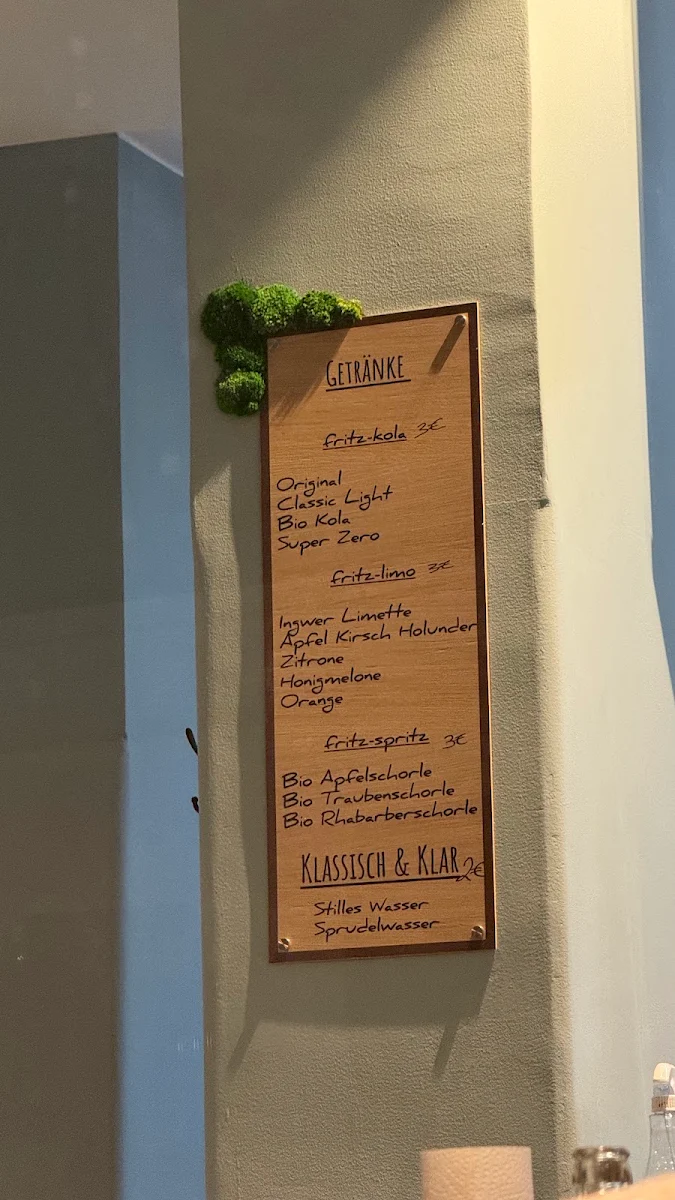 GETRÄNKE
fritz-kola 3€
Original
Classic Light
Bio Kola
Super Zero
fritz-limo 3€
Ingwer Limette
Apfel Kirsch Holunder
Zitrone
Honigmelone
Orange
fritz-spritz 3€
Bio Apfelschorle
Bio Traubenschorle
Bio Rhabarberschorle
KLASSISCH & KLAR 2€
Stilles Wasser
Sprudelwasser